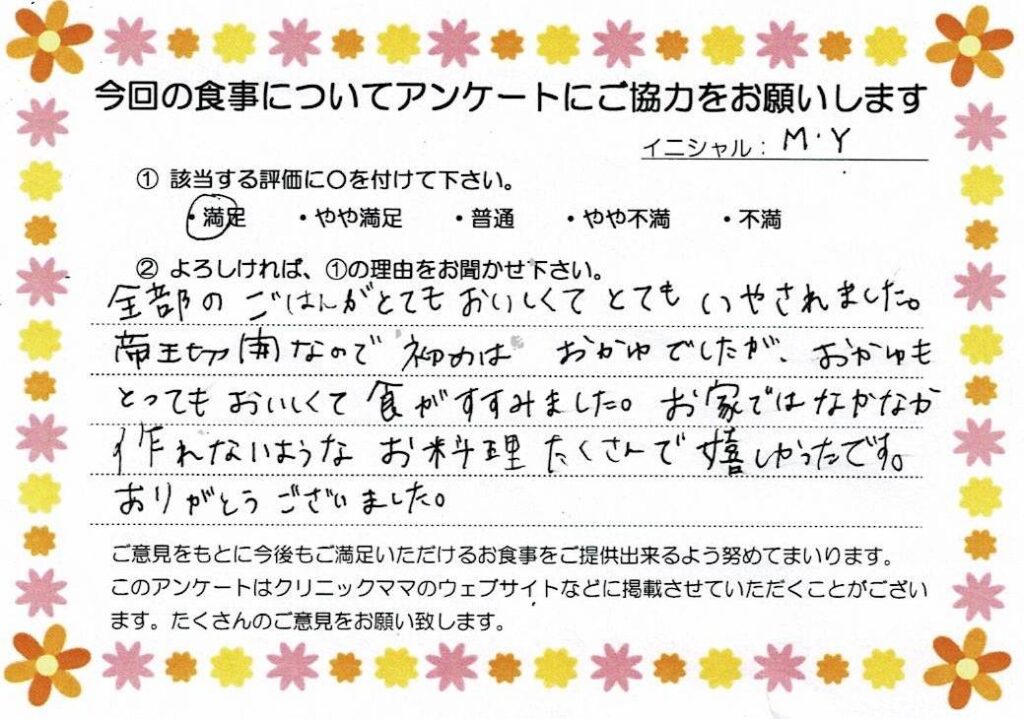 今回の食事についてアンケートにご協力をお願いします
イニシャル： M・Y
① 該当する評価に〇を付けて下さい。
・満足 ・やや満足 ・普通 ・やや不満 ・不満
② よろしければ、①の理由をお聞かせ下さい。
全部の ごはんがとてもおいしくて とても いやされました。
帝王切開なので 初めは おかゆでしたが、おかゆも
とってもおいしくて食がすすみました。お家ではなかなか
作れないような お料理たくさんで嬉しかったです。
ありがとうございました。
ご意見をもとに今後もご満足いただけるお食事をご提供出来るよう努めてまいります。
このアンケートはクリニックママのウェブサイトなどに掲載させていただくことがござい
ます。たくさんのご意見をお願い致します。